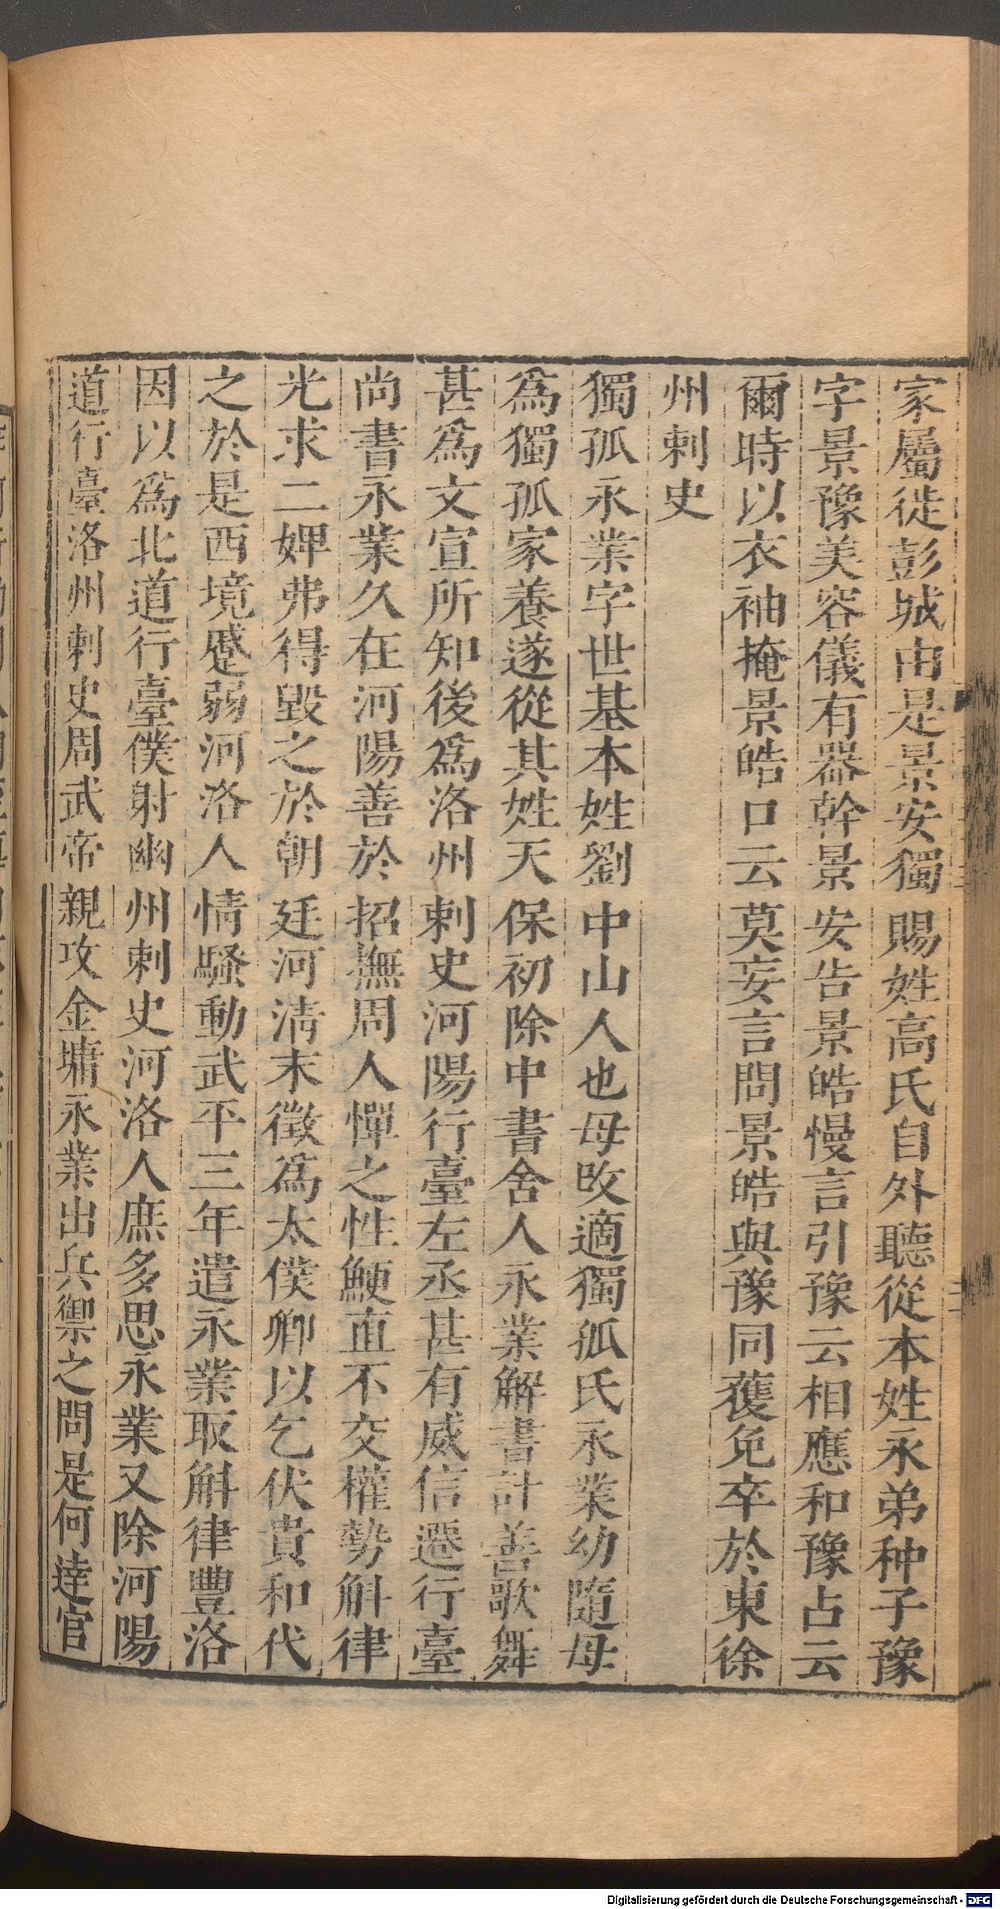 家屬徙彭城由是景安獨賜姓高氏自外聽從本姓永弟种子豫
字景豫美容儀有器幹景安告景皓慢言引豫云相應和豫占云
爾時以衣袖掩景皓口云莫妄言問景皓與豫同獲免卒於東徐
州刺史
獨孤永業字世基本姓劉中山人也母改適獨孤氏永業幼隨母
為獨孤家養遂從其姓天保初除中書舍人永業解書計善歌舞
甚爲文宣所知後爲洛州刺史河陽行臺左丞甚有威信遷行臺
尚書永業久在河陽善於招撫周人憚之性鯁直不交權勢斛律
光求二婢弗得毀之於朝廷河清末徵爲太僕卿以乞伏貴和代
之於是西境蹙弱河洛人情騷動武平三年遣永業取斛律豐洛
因以爲北道行臺僕射幽州刺史河洛人庶多思永業又除河陽
道行臺洛州刺史周武帝親攻金墉永業出兵禦之問是何達官
Digitalisierung gefördert durch die Deutsche Forschungsgemeinschaft - DFG